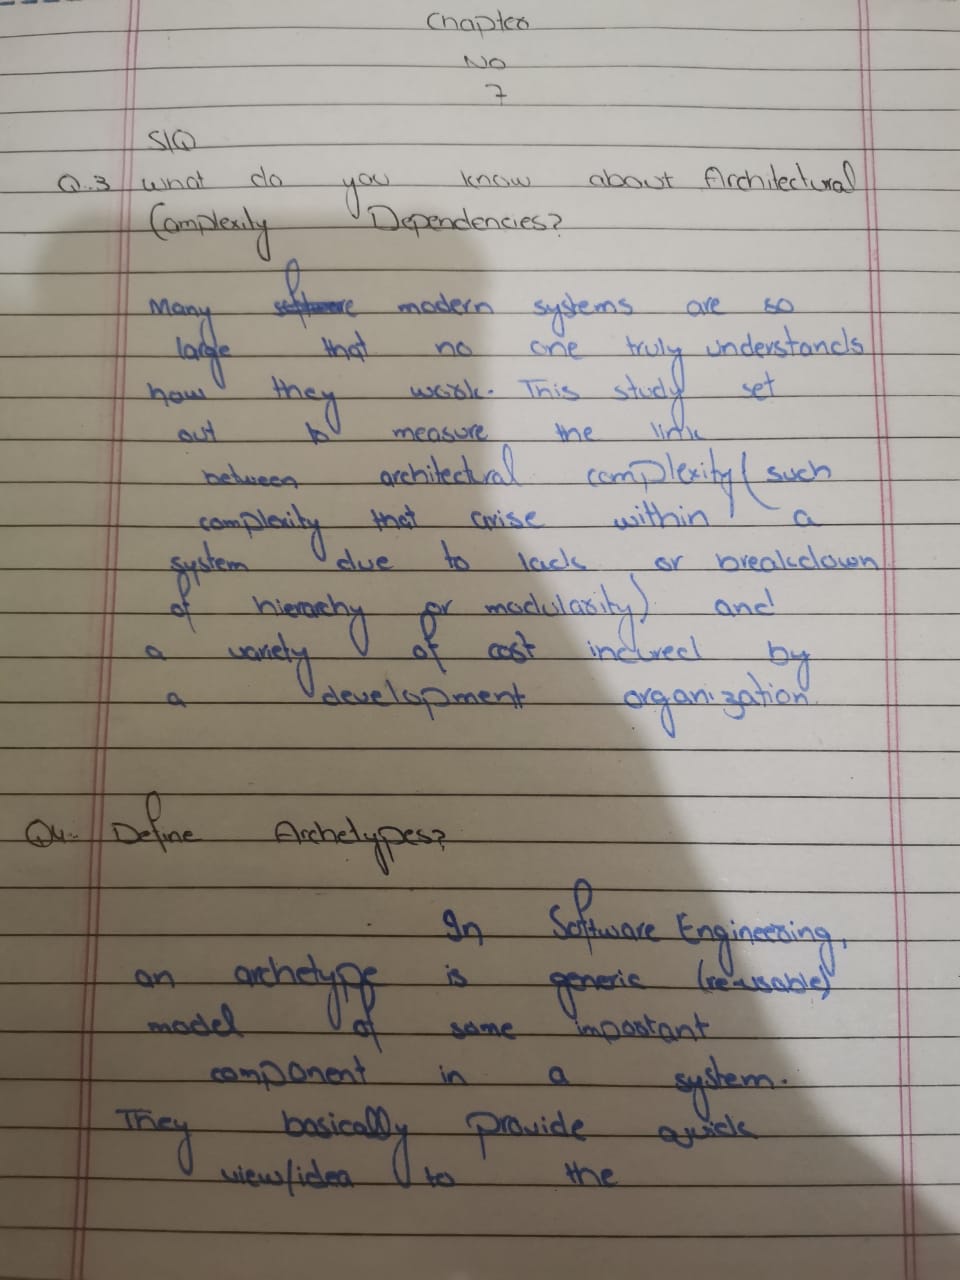 Chapter
No
7
S/Q
Q.3 what do you know about Architectural
Complexity Dependencies?
Many software modern systems are so
large that no one truly understands
how they work. This study set
out to measure the link
between architectural complexity (such
complexity that arise within a
system due to lack or breakdown
of hierachy or modularity) and
a variety of cost incured by
a development organization.
Q4. Define Archetypes?
In Software Engineering,
an archetype is generic (re-usable)
model of some important
component in a system.
They basically provide quick
view/idea to the